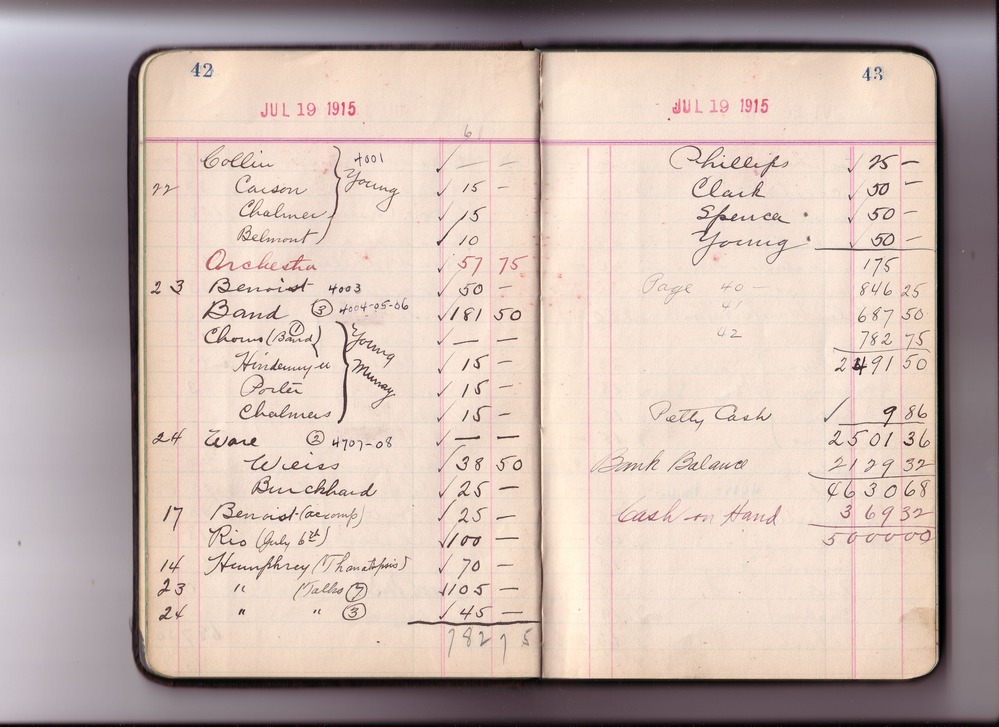 42
JUL 19 1915
61
Collin 4001 ✓ — —
22 Carson Young ✓ 15 —
Chalmers ✓ 15
Belmont ✓ 10
Orchestra ✓ 57 75
23 Benoist 4003 ✓ 50 —
Band ③ 4004-05-06 ✓ 181 50
Chorus (Band) Young ✓ — —
✓ 15 —
Porter Murray ✓ 15 —
Chalmers ✓ 15 —
24 Ware ② 4707-08 ✓ — —
Weiss ✓ 38 50
Burckhard ✓ 25 —
17 Benoist (accomp) ✓ 25 —
Rio (July 6th) ✓ 100 —
14 Humphrey (Thanatopsis) ✓ 70 —
23 " (Talks ⑦ ✓ 105 —
24 " " ③ ✓ 45 —
782 75
43
JUL 19 1915
Phillips ✓ 25 —
Clark ✓ 50 —
Spencer ✓ 50 —
Young ✓ 50 —
175
Page 40 — 846 25
41 687 50
42 782 75
2491 50
Petty Cash ✓ 9 86
2501 36
Bank Balance 2129 32
4630 68
Cash on Hand 369 32
5000 00